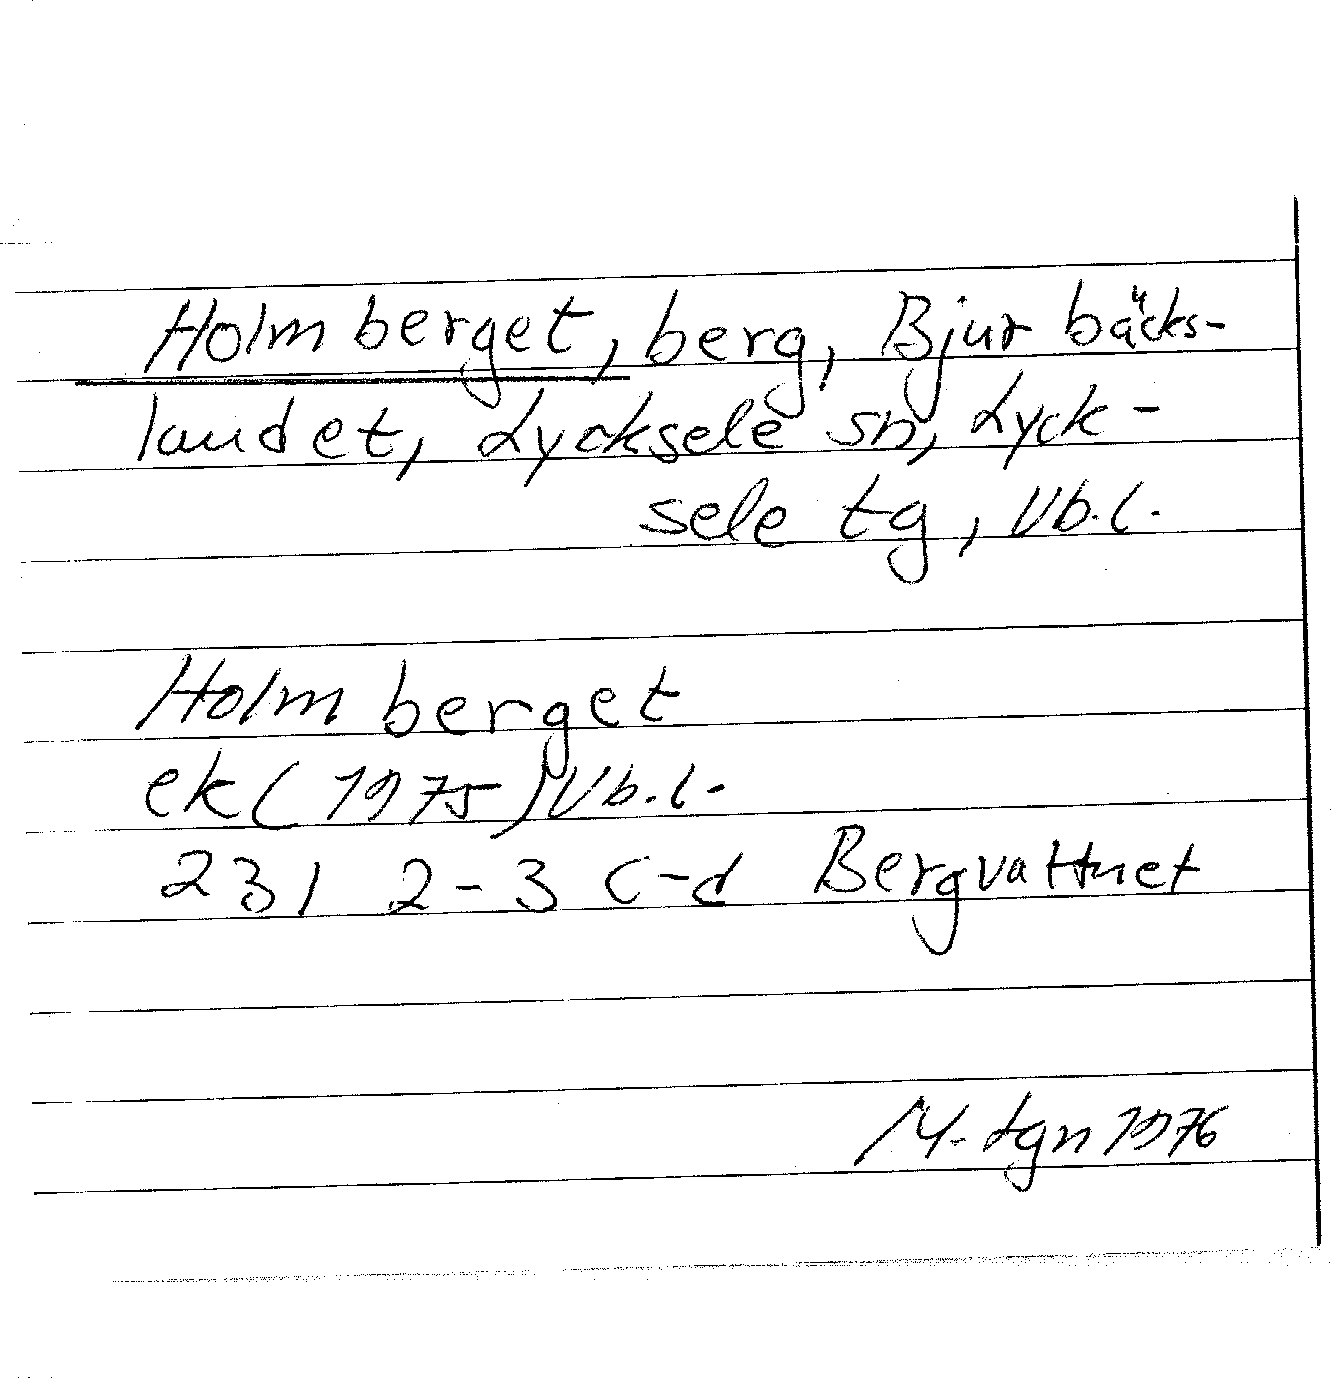 Holmberget, berg, Bjurbäcks-
landet, Lycksele sn, Lyck-
sele tg, Vb.l.
Holmberget
ek (1975) Vb.l.
231 2-3 c-d Bergvattnet
M. Lgn 1976